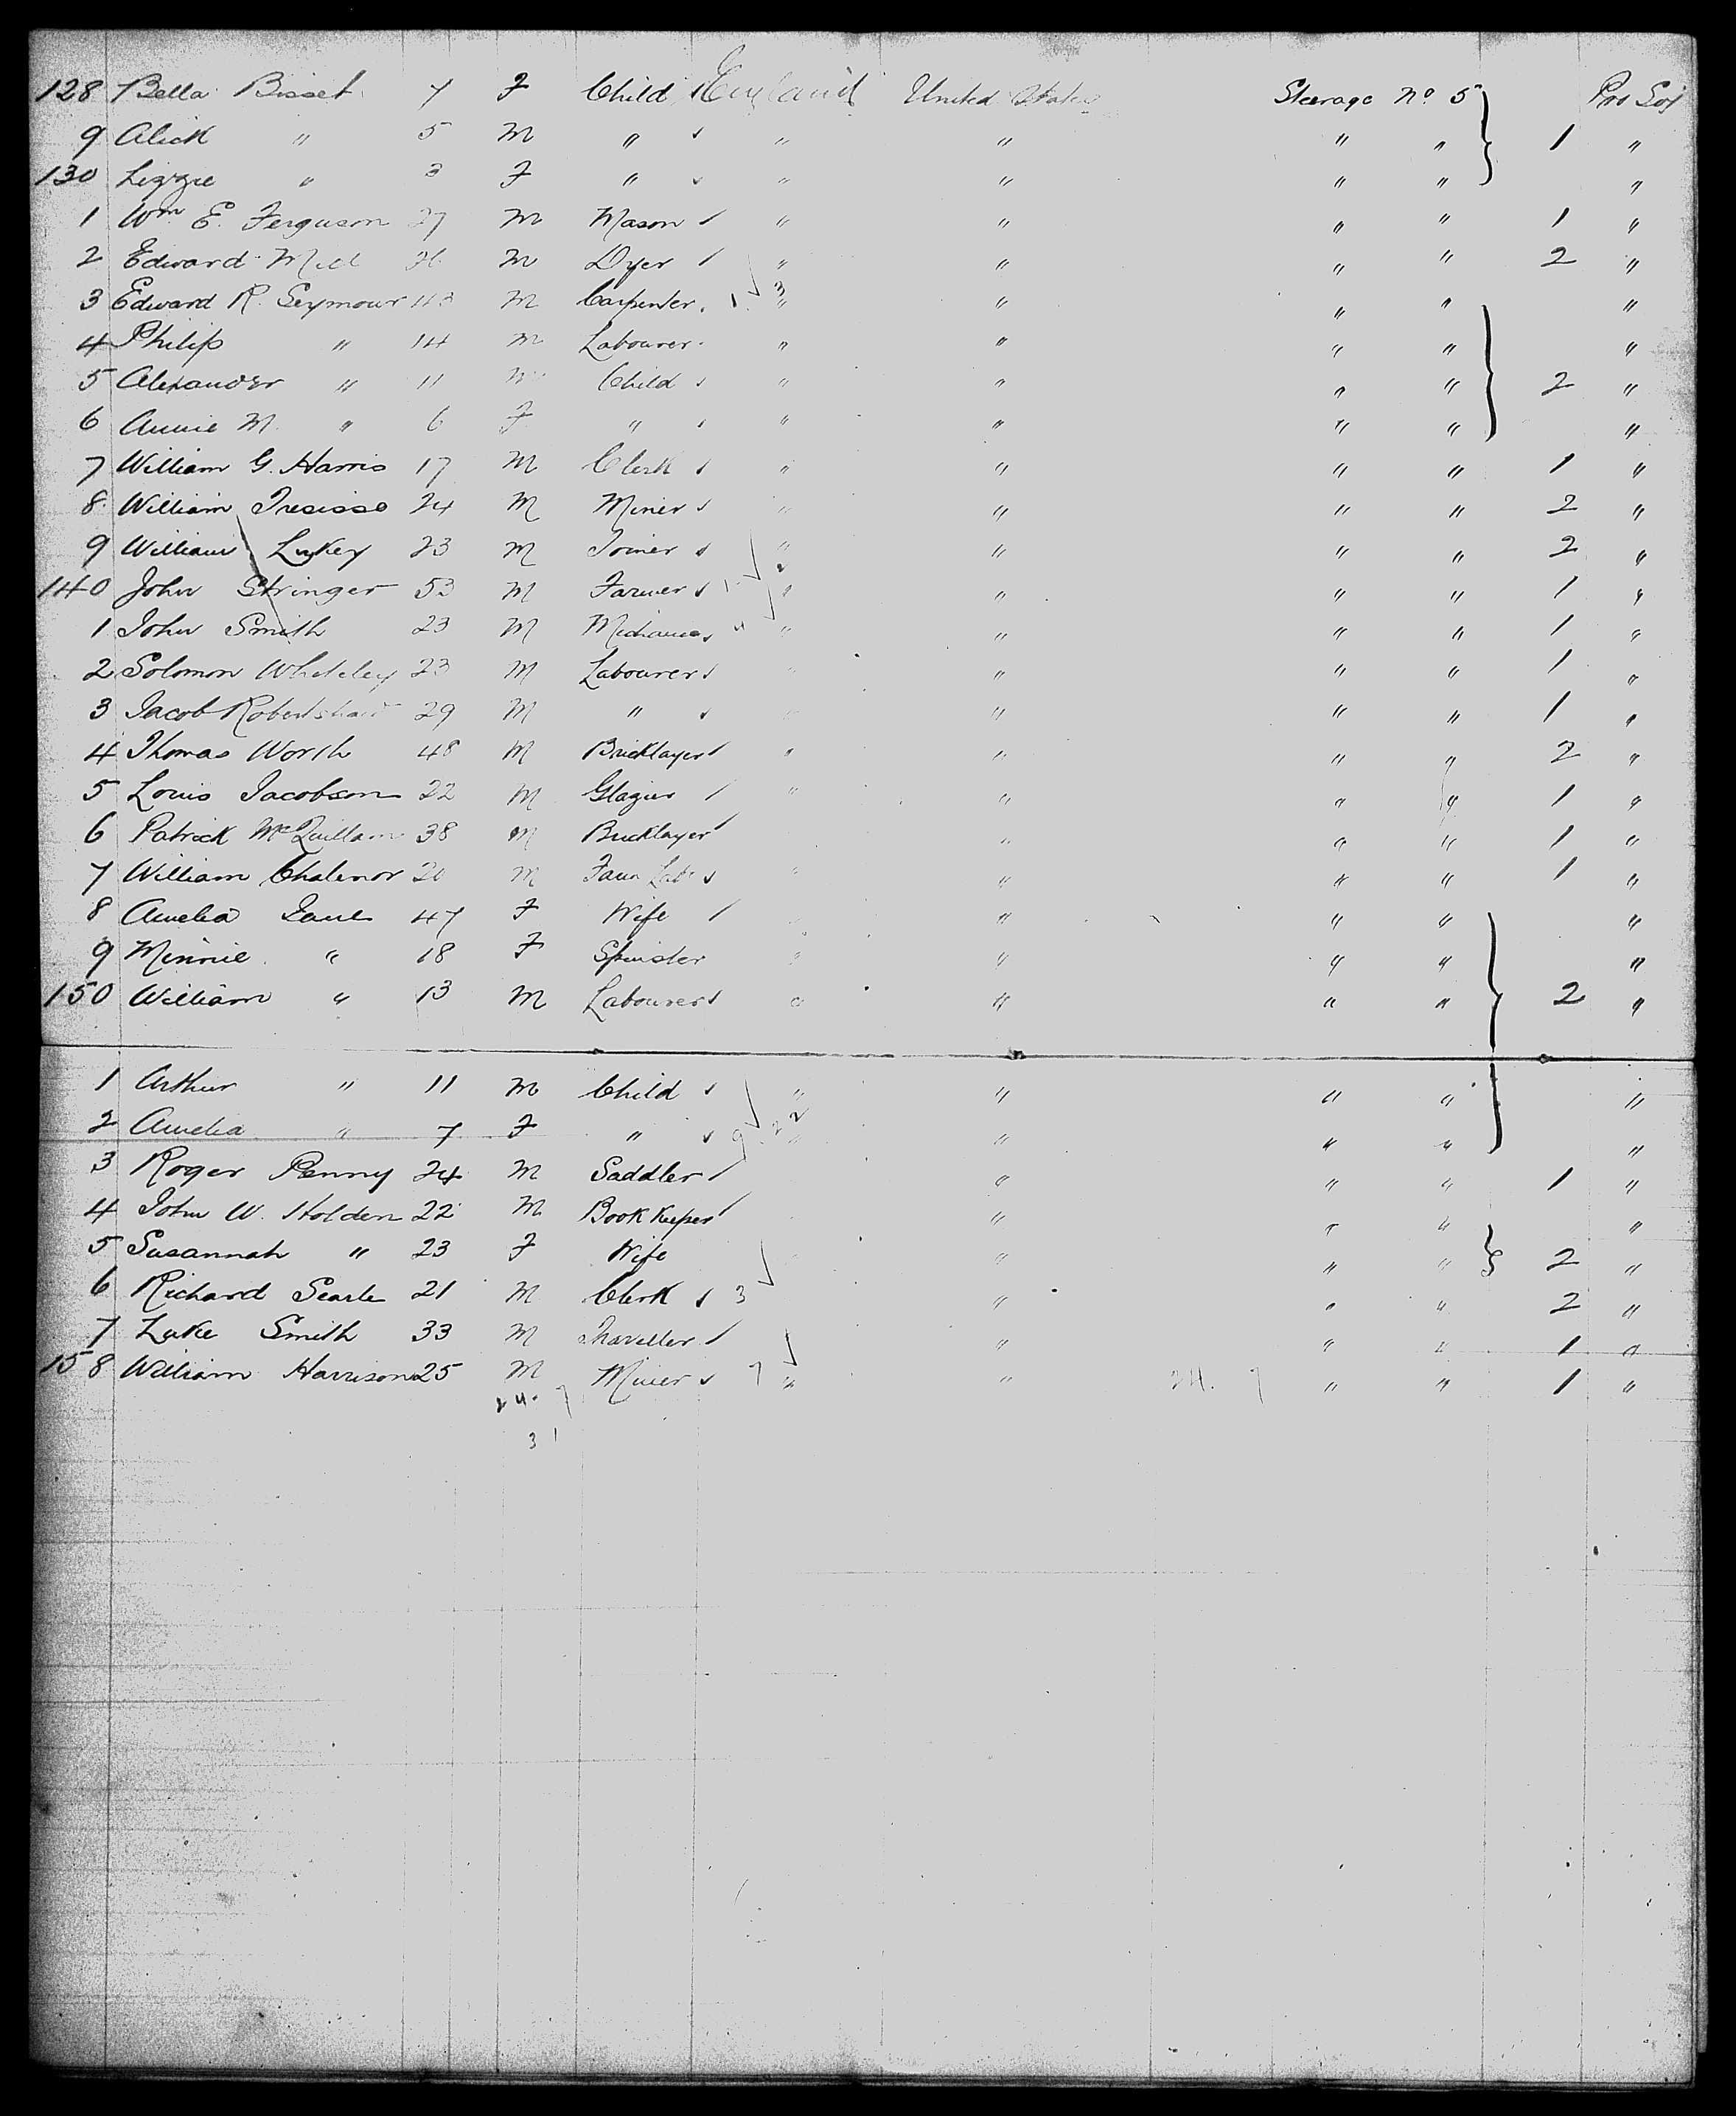 128 Bella Bisset 7 F Child England United States Steerage No 5 Pro Soj
9 Alick " 5 M " " " " " 1 "
130 Lizzie " 3 F " " " " " "
1 Wm E. Ferguson 27 M Mason " " " " 1 "
2 Edward M Dyer " " " " 2 "
3 Edward R. Seymour 43 M Carpenter " " " " "
4 Philip " 14 M Labourer " " " " "
5 Alexander " 11 M Child " " " " 2 "
6 Annie M. " 6 F " " " " " "
7 William G. Harris 17 M Clerk " " " " 1 "
8 William 24 M Miner " " " " 2 "
9 William Lukey 23 M Joiner " " " " 2 "
140 John Stringer 53 M Farmer " " " " 1 "
1 John Smith 23 M " " " " 1 "
2 Solomon Whiteley 23 M Labourer " " " " 1 "
3 Jacob Robertshaw 29 M " " " " " 1 "
4 Thomas Worth 48 M Bricklayer " " " " 2 "
5 Louis Jacobson 22 M Glazier " " " " 1 "
6 Patrick McQuillam 38 M Bricklayer " " " 1 "
7 William Chalenor 20 M Farm Labr " " " " 1 "
8 Amelia 47 F Wife " " " "
9 Minnie " 18 F Spinster " " " " "
150 William " 13 M Labourer " " " " 2 "
1 Arthur " 11 M Child " " " " "
2 Amelia " 7 F " 9 22 " " " " "
3 Roger Penny 24 M Saddler " " " 1 "
4 John W. Holden 22 M Book Keeper " " " "
5 Susannah " 23 F Wife " " " 2 "
6 Richard Searle 21 M Clerk 3 " " " 2 "
7 Luke Smith 33 M Traveller " " " 1 "
158 William Harrison 25 M Miner 7 " " 24. 7 " " 1 "
24. 7
31